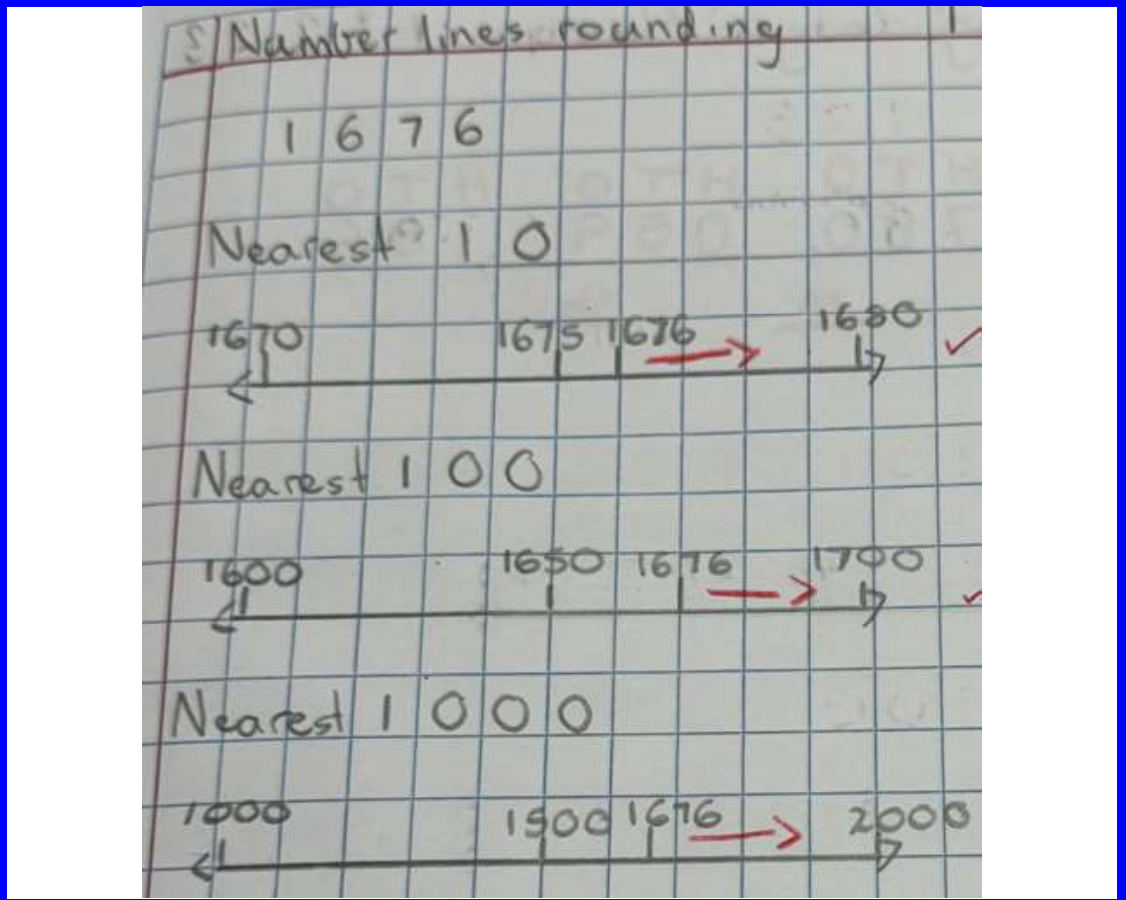 Number lines rounding
1 6 7 6
Nearest 1 0
1670 1675 1676 1680
Nearest 1 0 0
1600 1650 1676 1700
Nearest 1 0 0 0
1000 1500 1676 2000